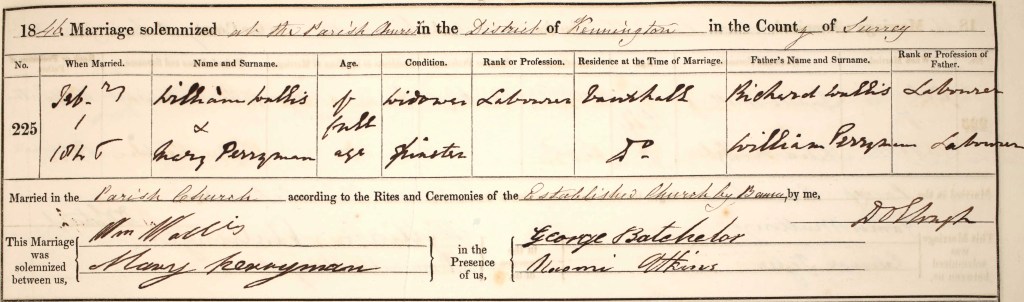 1846. Marriage solemnized at the Parish Church in the District of Kennington in the County of Surrey
No. When Married. Name and Surname. Age. Condition. Rank or Profession. Residence at the Time of Marriage. Father's Name and Surname. Rank or Profession of Father.
225 Feb. William Wallis of Widower Labourer Vauxhall Richard Wallis Labourer
& full
184 Mary Perryman age Spinster Do William Perryman Labourer
Married in the Parish Church according to the Rites and Ceremonies of the Established Church by Banns, by me,
This Marriage was solemnized between us, Wm Wallis in the Presence of us, George Batchelor
Mary Perryman Naomi Atkins